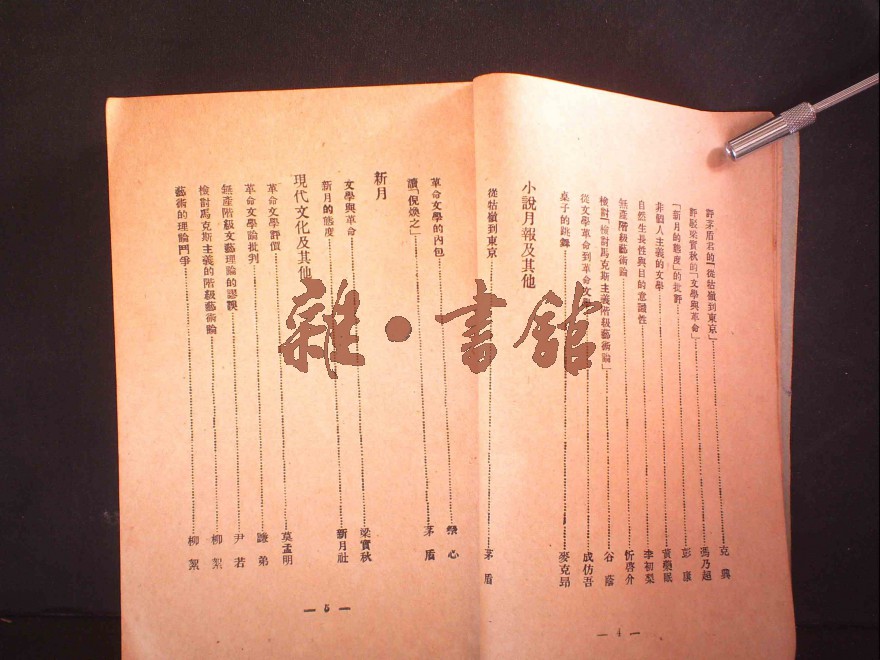 評茅盾君的「從牯嶺到東京」 克興
評駁梁實秋的「文學與革命」 馮乃超
「新月的態度」的批評 彭康
非個人主義的文學 黃藥眠
自然生長性與目的意識性 李初梨
無產階級藝術論 忻啓介
檢討「檢討馬克斯主義階級藝術論」 谷蔭
從文學革命到革命文學 成仿吾
桌子的跳舞 麥克昂
小說月報及其他
從牯嶺到東京 茅盾
— 4 —
革命文學的內包 心
讀「倪煥之」 茅盾
新月
文學與革命 梁實秋
新月的態度 新月社
現代文化及其他
革命文學評價 莫孟明
革命文學論批判 謙弟
無產階級文藝理論的謬誤 尹若
檢討馬克斯主義的階級藝術論 柳絮
藝術的理論鬥爭 柳絮
— 5 —
雜·書館